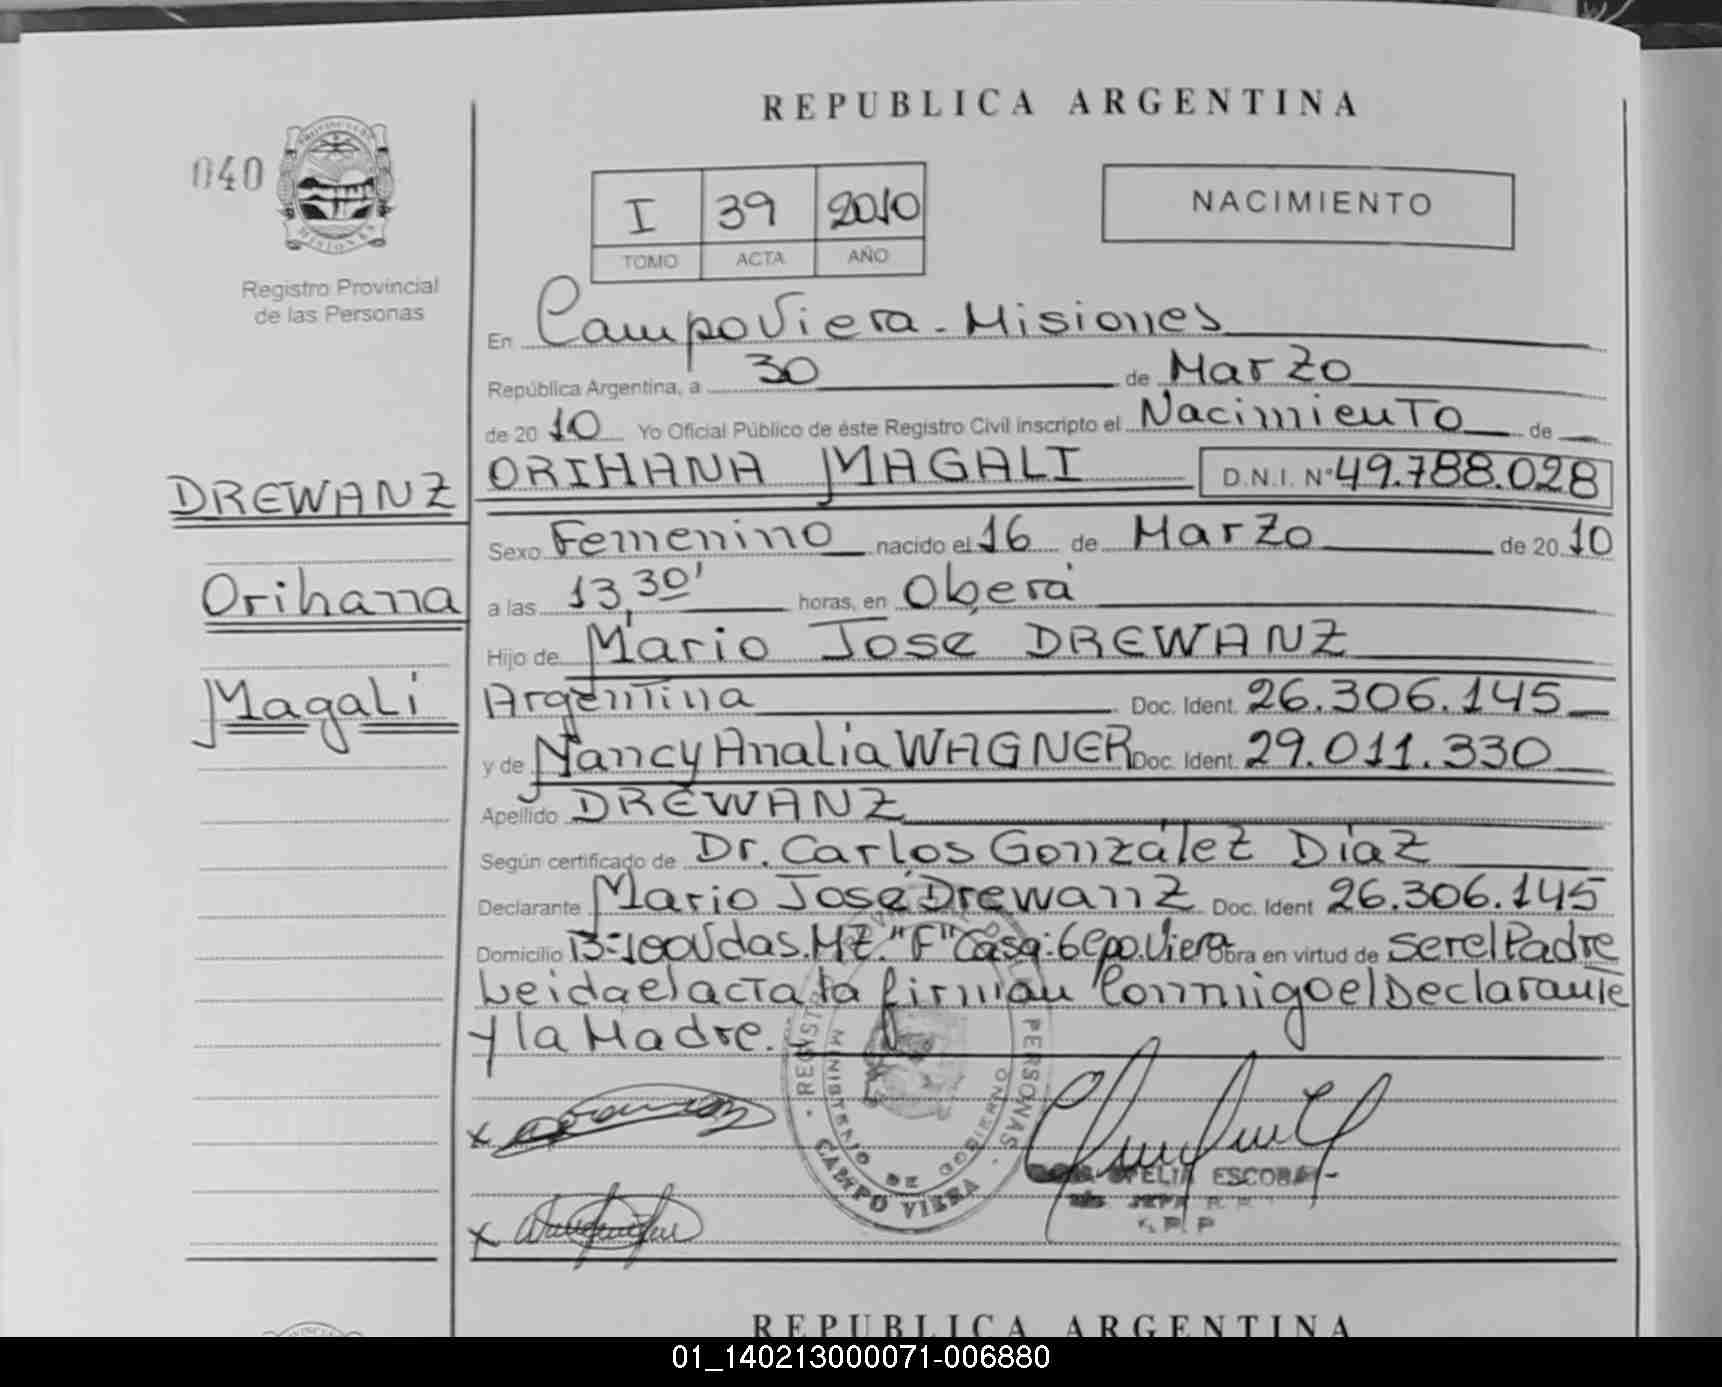 REPUBLICA ARGENTINA
040
PROVINCIA DE
MISIONES
Registro Provincial
de las Personas
I 39 2010
TOMO ACTA AÑO
NACIMIENTO
En Campo Viera - Misiones
República Argentina, a 30 de Marzo
de 20 10 Yo Oficial Público de éste Registro Civil inscripto el Nacimiento de
ORIHANA MAGALI D.N.I. Nº 49.788.028
DREWANZ
Orihana
Magali
Sexo Femenino nacido el 16 de Marzo de 20 10
a las 13,30' horas, en Oberá
Hijo de Mario José DREWANZ
Argentina Doc. Ident. 26.306.145
y de Nancy Analia WAGNER Doc. Ident. 29.011.330
Apellido DREWANZ
Según certificado de Dr. Carlos González Díaz
Declarante Mario José Drewanz Doc. Ident 26.306.145
Domicilio Bº 100 Vdas. MZ. "F" Casa: 6 Cpo. Viera Obra en virtud de ser el Padre
Leida el acta la firman Conmigo el Declarante
y la Madre.
REGISTRO PROVINCIAL DE LAS PERSONAS
MINISTERIO DE GOBIERNO
CAMPO VIERA
x
OFELIA ESCOBAR
x
REPUBLICA ARGENTINA
01_140213000071-006880